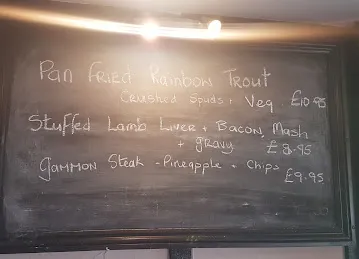 Pan Fried Rainbow Trout
Crushed Spuds + Veg £10.95
Stuffed Lamb Liver + Bacon, Mash
+ gravy £8.95
Gammon Steak - Pineapple + Chips
£9.95